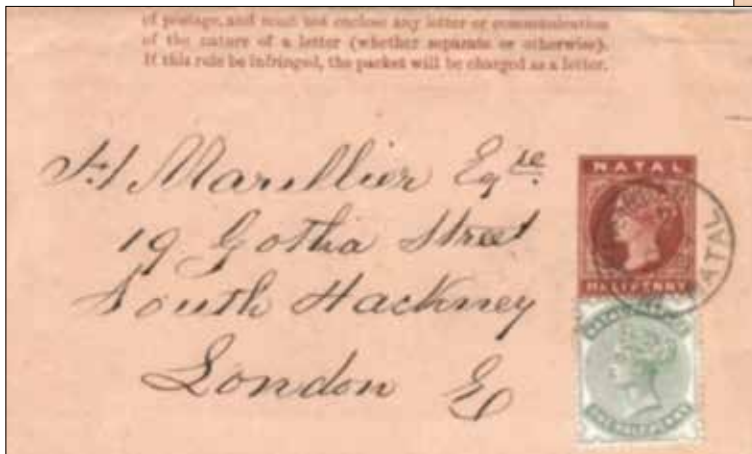 of postage, and must not enclose any letter or communication
of the nature of a letter (whether separate or otherwise).
If this rule be infringed, the packet will be charged as a letter.
H Marillier Esqre
19 Gotha Street
South Hackney
London E
NATAL
HALFPENNY
NATAL